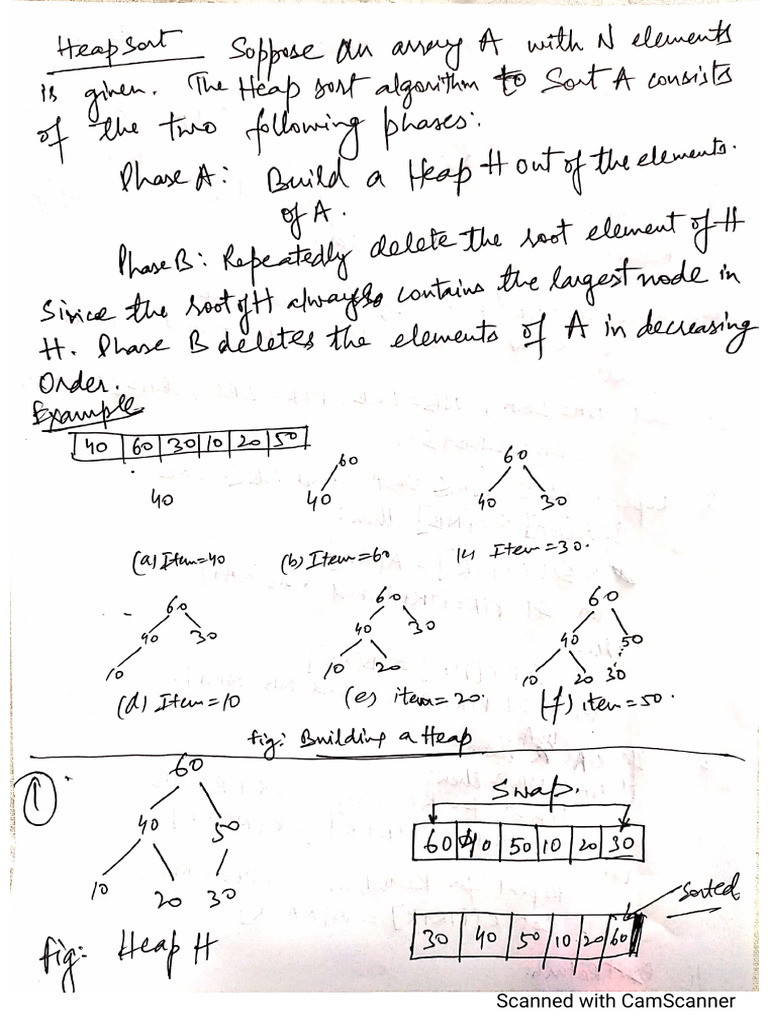 Heap Sort Soppose an array A with N elements
is given. The Heap sort algorithm to Sort A consists
of the two following phases:
Phase A: Build a Heap H out of the elements.
of A.
Phase B: Repeatedly delete the root element of H
Sinice the root of H always contains the largest node in
H. Phase B deletes the elements of A in decreasing
Order.
Example
40 60 30 10 20 50
40
60
40
60
40 30
(a) Item=40 (b) Item=60 (c) Item=30.
60
40 30
10
60
40 30
10 20
60
40 50
10 20 30
(d) Item=10 (e) item=20. (f) iten=50.
fig: Building a Heap
①
60
40 50
10 20 30
fig: Heap H
Swap.
60 40 50 10 20 30
sorted
30 40 50 10 20 60
Scanned with CamScanner